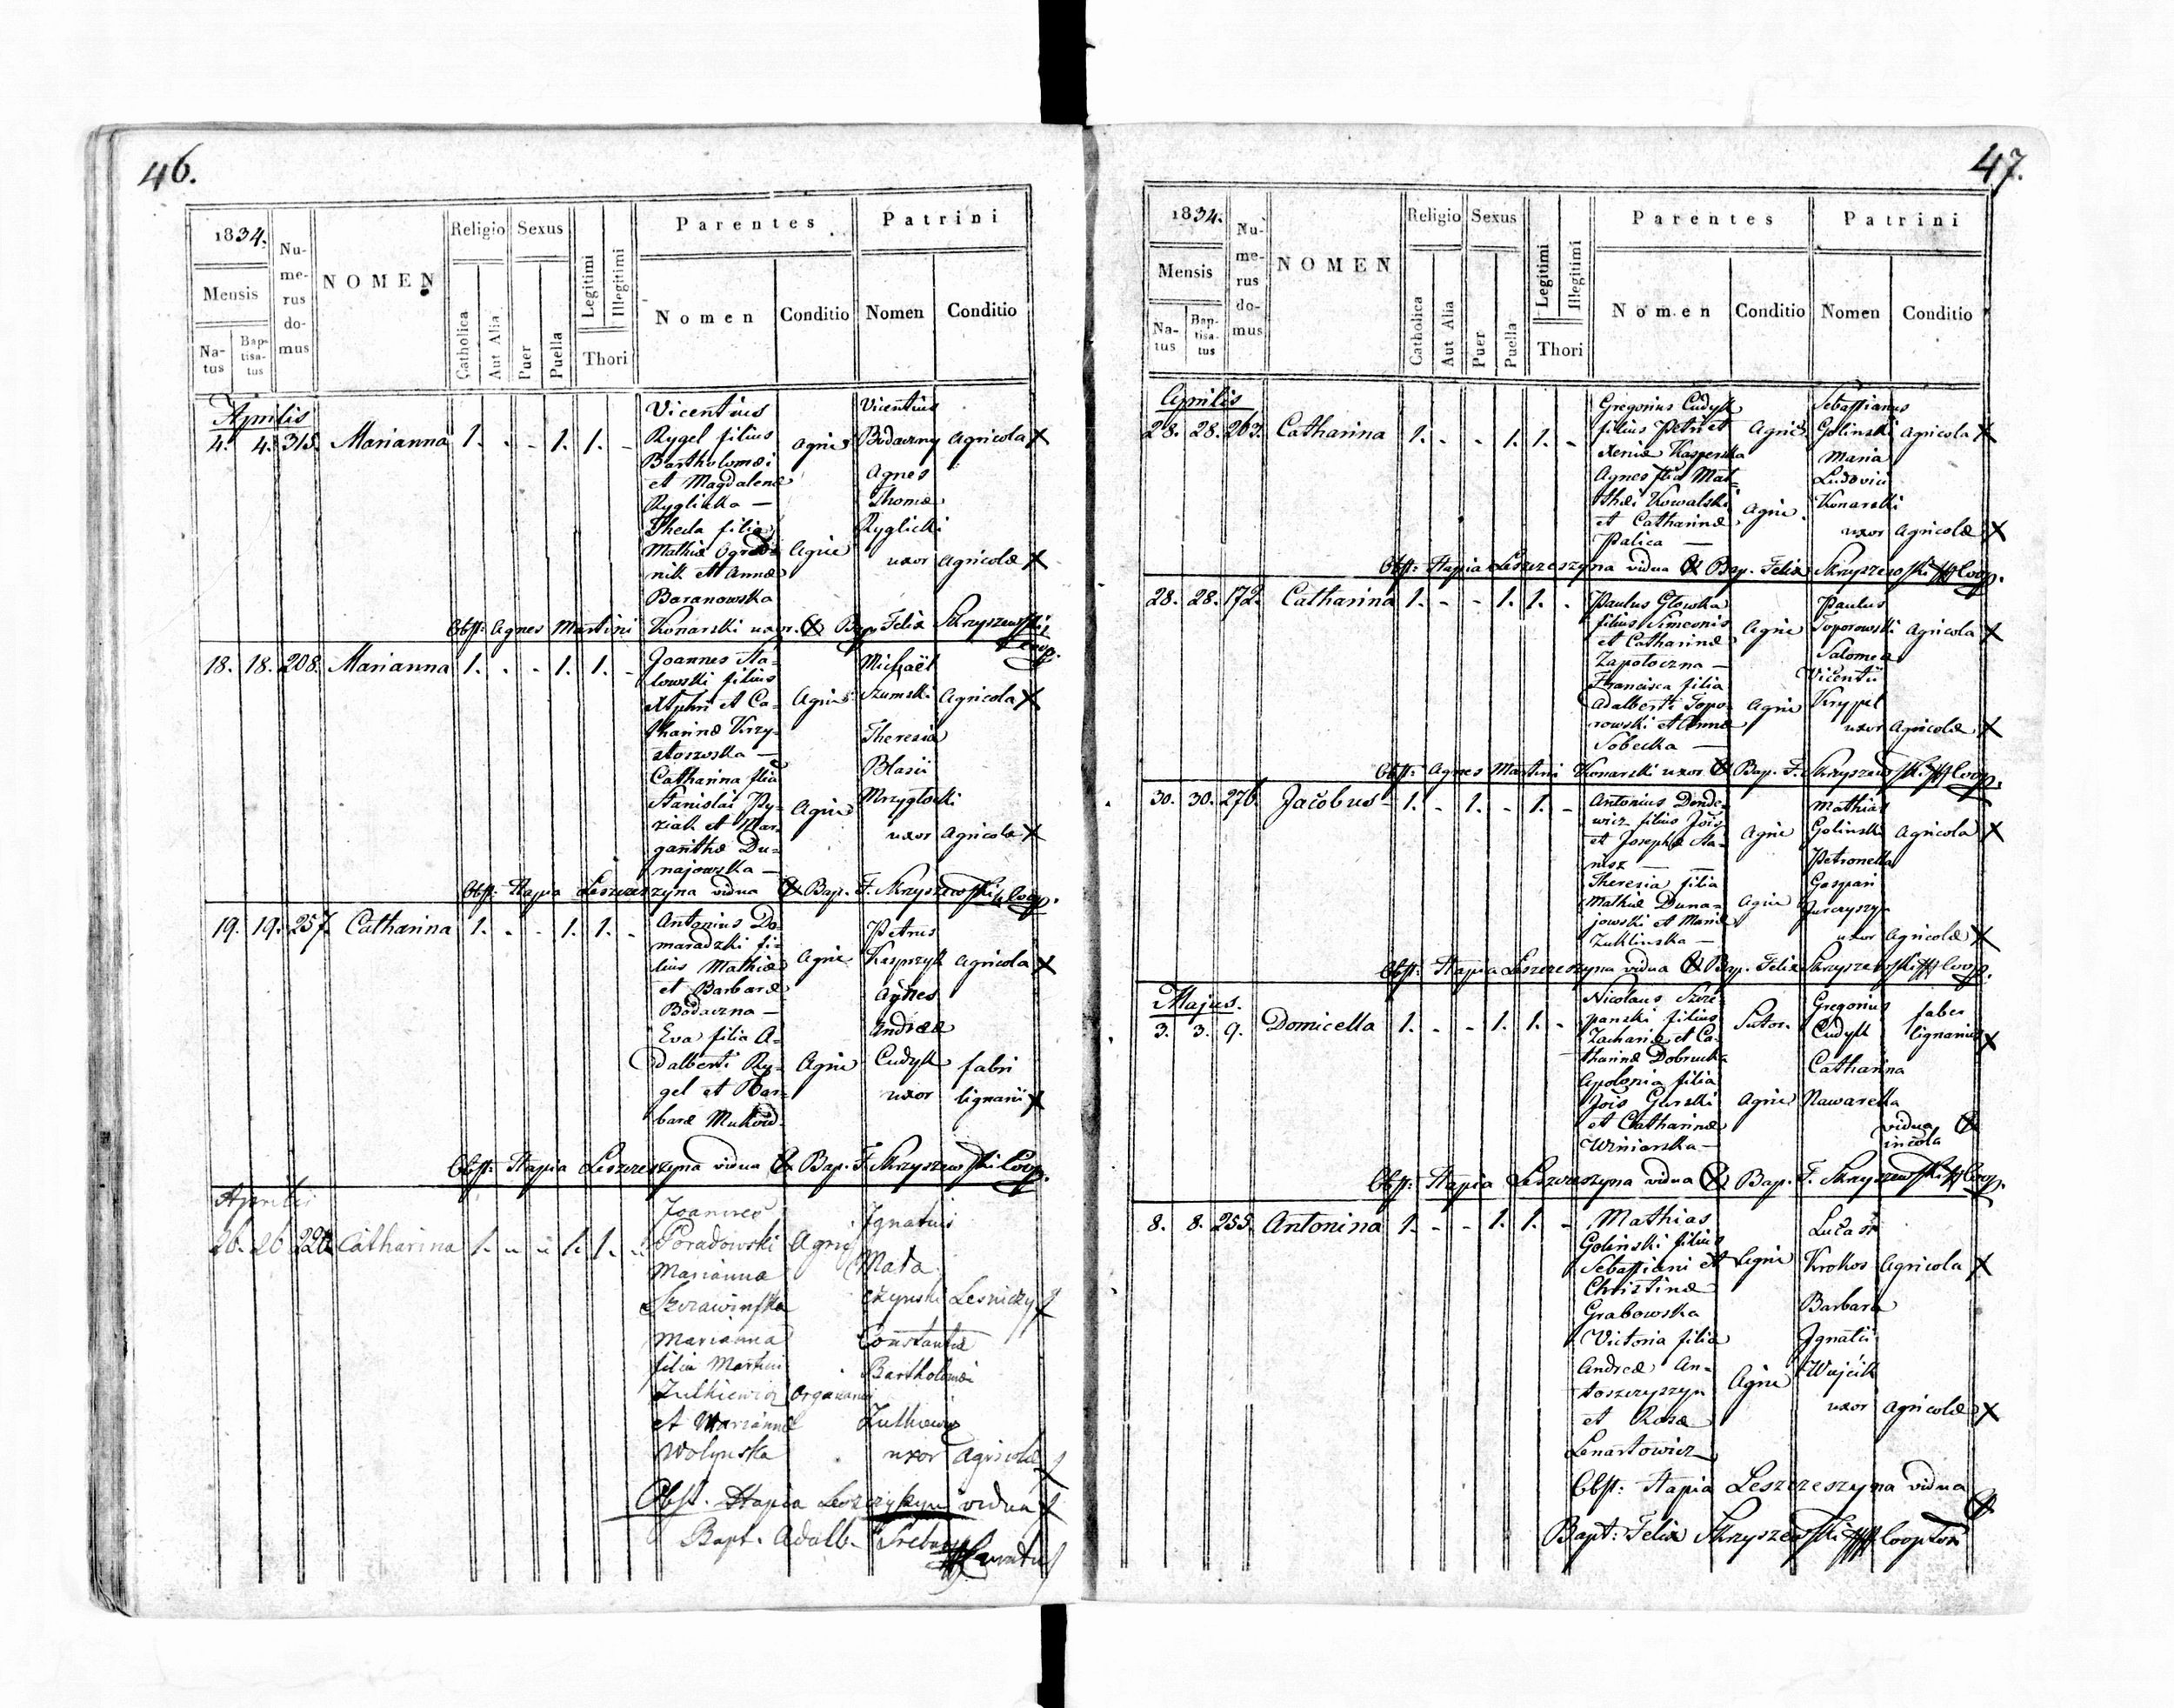 46.
1834.
Mensis
Na-
tus
Bap-
tisa-
tus
Nu-
me-
rus
do-
mus
NOMEN
Religio
Catholica
Aut Alia
Sexus
Puer
Puella
Legitimi
Illegitimi
Thori
Parentes
Nomen
Conditio
Patrini
Nomen
Conditio
Aprilis
4. 4. 315. Marianna 1. - - 1. 1. -
Vicentius
Rygel filius
Bartholomæi
et Magdalenæ
Ryglicka —
Thecla filia
Mathiæ Ogrod-
nik et Annæ
Baranowska
Agric
Agric
Vicentius
Bodaczny Agricola X
Agnes
Thomæ
Ryglicki
uxor Agricolæ X
Obst: Agnes Martini Konarski uxor. X Bap. Felix Skryszewski
Coop.
18. 18. 208. Marianna 1. - - 1. 1. -
Joannes Sta-
lowski filius
et Ca-
tharinæ Krzy-
stoszoska —
Catharina filia
Stanislai Py-
ziak et Mar-
garithæ Du-
najowska —
Agric
Agric
Michaël
Szumski Agricola X
Theresia
Blasii
Mrzygłocki
uxor Agricola X
Obst: Stapia Leszczeszyna vidua X Bap. F. Skryszewski Coop.
19. 19. 257. Catharina 1. - - 1. 1. -
Antonius Do-
maradzki fi-
lius Mathiæ
et Barbaræ
Bodaczna —
Eva filia A-
dalberti Ry-
gel et Bar-
baræ
Agric
Agric
Petrus
Kasprzyk Agricola X
Agnes
Andreæ
Cudyk fabri
uxor lignarii X
Obst: Stapia Leszczeszyna vidua X Bap. F. Skryszewski Coop.
Aprilis
26. 26 Catharina 1. - - 1. 1. -
Joannes
Poradowski
Marianna
Marianna
filia Martini
Zulkiewicz
et Mariannæ
Wolynska
Agric
Organarii
Ignatius
Mada
czynski Lesniczy X
Constantia
Bartholomæi
Zulkiewicz
uxor Agricolæ X
Obst. Stapia Leszczyszyn vidua X
Bapt. Adalb. Curatus
47.
1834.
Mensis
Na-
tus
Bap-
tisa-
tus
Nu-
me-
rus
do-
mus
NOMEN
Religio
Catholica
Aut Alia
Sexus
Puer
Puella
Legitimi
Illegitimi
Thori
Parentes
Nomen
Conditio
Patrini
Nomen
Conditio
Aprilis
28. 28. 263. Catharina 1. - - 1. 1. -
Gregorius Cudyk
filius Petri et
Xeniæ Kasperska
Agnes filia Mat-
thæi Kowalski
et Catharinæ
Palica —
Agric
Agric
Sebastianus
Golinski Agricola X
Maria
Ludovici
Konarski
uxor Agricolæ X
Obst: Stapia Leszczeszyna vidua X Bap. Felix Skryszewski Coop.
28. 28. 172. Catharina 1. - - 1. 1. -
Paulus Głowka
filius Simeonis
et Catharinæ
Zapotoczna —
Francisca filia
Adalberti Topo-
rowski et Annæ
Sobecka —
Agric
Agric
Paulus
Toporowski Agricola X
Salomea
Vicentii
Krypel
uxor Agricolæ X
Obst: Agnes Martini Konarski uxor X Bap. F. Skryszewski Coop.
30. 30. 276. Jacobus 1. - 1. - 1. -
Antonius Dende-
wicz filius Jois
et Josephæ Sta-
nisz —
Theresia filia
Mathiæ Duna-
jowski et Mariæ
Zuklinska —
Agric
Agric
Mathias
Golinski Agricola X
Petronella
Gaspari
Jurczyszyn
uxor Agricolæ X
Obst: Stapia Leszczeszyna vidua X Bap. Felix Skryszewski Coop.
Majus.
3. 3. 9. Domicella 1. - - 1. 1. -
Nicolaus Szcze-
panski filius
Zachariæ et Ca-
tharinæ Dobrucka
Apolonia filia
Jois Gurski
et Catharinæ
Winiarska —
Sutor.
Agric
Gregorius faber
Cudyk lignarius X
Catharina
Nawarecka
vidua X
incola
Obst: Stapia Leszczeszyna vidua X Bap. F. Skryszewski Coop.
8. 8. 255. Antonina 1. - - 1. 1. -
Mathias
Golinski filius
Sebastiani et
Christinæ
Grabowska
Victoria filia
Andreæ An-
toszczyszyn
et Rosæ
Lenartowicz
Agric
Agric
Lucas
Krokos Agricola X
Barbara
Ignatii
Wujcik
uxor Agricolæ X
Obst: Stapia Leszczeszyna vidua X
Bapt: Felix Skryszewski Cooptor